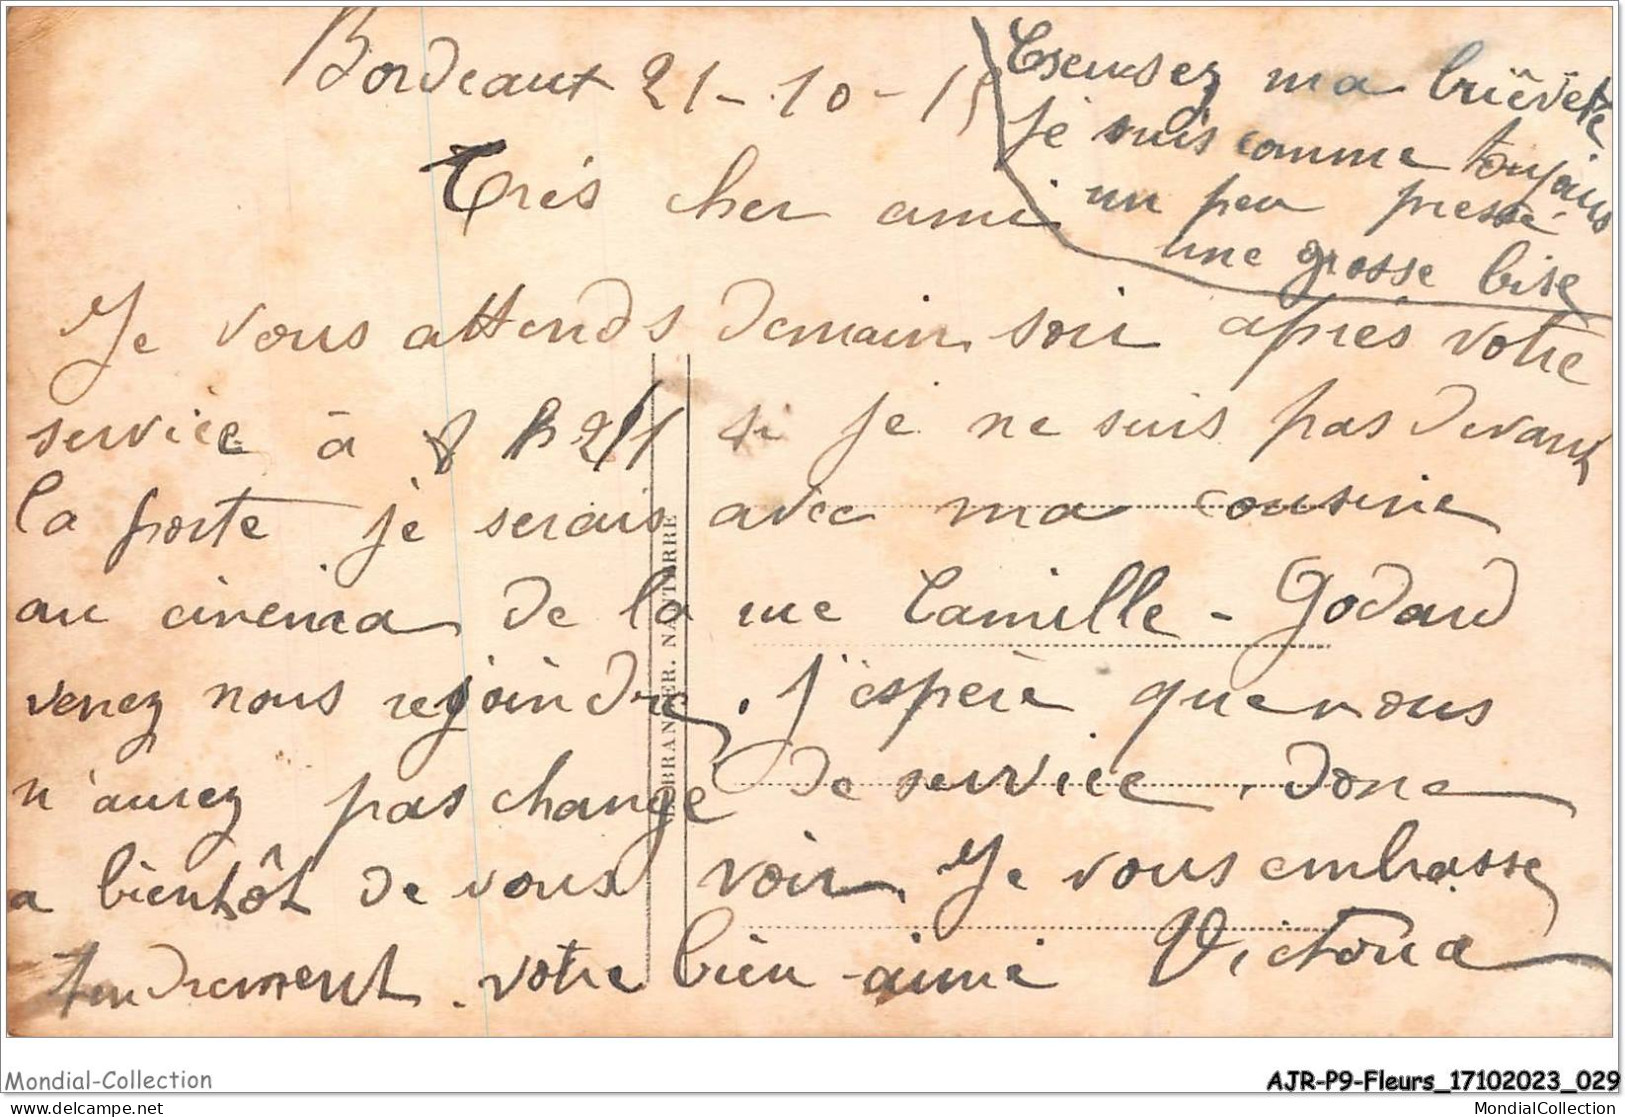 Bordeaux 21-10-15
Excusez ma brièveté
Je suis comme toujours
un peu pressé
une grosse bise
Très cher ami
Je vous attends demain soir après votre
service à 8 h 2/1 si je ne suis pas devant
la porte je serais avec ma cousine
au cinema de la rue Camille-Godard
venez nous rejoindre. J'espère que vous
n'aurez pas changé de service, donc
a bientôt de vous voir. Je vous embrasse
tendrement. votre bien-aimé Victoria
BRANGER. NANTERRE
Mondial-Collection
AJR-P9-Fleurs_17102023_029
mondial-collection.com
MondialCollection